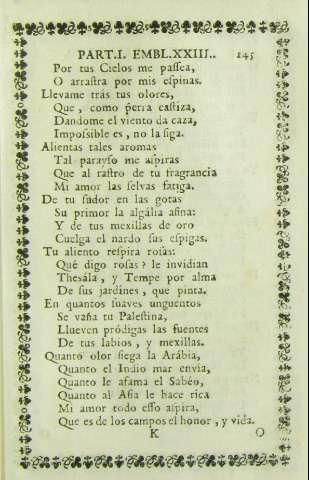 PART.I. EMBL.XXIII.. 145
Por tus Cielos me passea,
O arrastra por mis espinas.
Llevame trás tus olores,
Que, como perra castiza,
Dandome el viento da caza,
Impossible es, no la siga.
Alientas tales aromas
Tal parayso me aspiras
Que al rastro de tu fragrancia
Mi amor las selvas fatiga.
De tu sudor en las gotas
Su primor la algália afina:
Y de tus mexillas de oro
Cuelga el nardo sus espigas.
Tu aliento respira rosas:
Qué digo rosas? le invidian
Thesála, y Tempe por alma
De sus jardines, que pinta.
En quantos suáves unguentos
Se vaña tu Palestina,
Llueven pródigas las fuentes
De tus labios, y mexillas.
Quanto olor siega la Arábia,
Quanto el Indio mar envia,
Quanto le afama el Sabéo,
Quanto al Asia le hace rica
Mi amor todo esso aspira,
Que es de los campos el honor, y vida.
K O